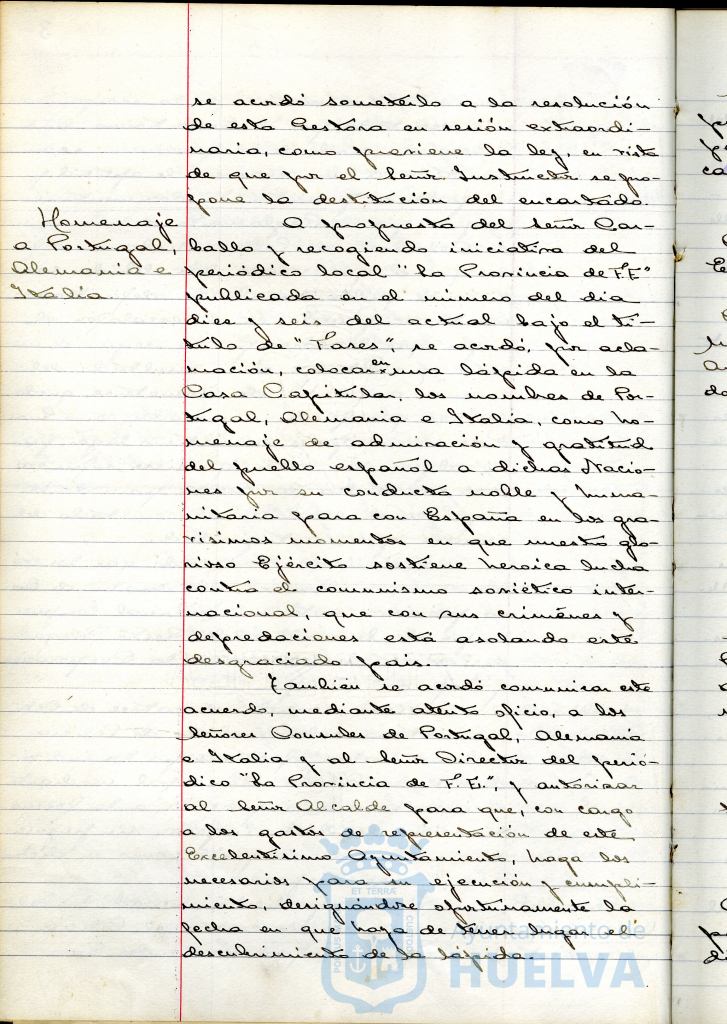 se acordó someterlo a la resolución
de esta Gestora en sesión extraordi-
naria, como previene la ley, en vista
de que por el Señor Instructor se pro-
pone la destitución del encartado.
Homenaje
a Portugal,
Alemania e
Italia.
A propuesta del Señor Car-
ballo y recogiendo iniciativa del
periódico local "La Provincia de F.E"
publicada en el número del dia
diez y seis del actual bajo el tí-
tulo de "Fases", se acordó, por acla-
mación, colocar en una lápida en la
Casa Capitular, los nombres de Por-
tugal, Alemania e Italia, como ho-
menaje de admiración y gratitud
del pueblo español a dichas Nacio-
nes por su conducta noble y huma-
nitaria para con España en los gra-
vísimos momentos en que nuestro glo-
rioso Ejército sostiene heroica lucha
contra el comunismo soviético inter-
nacional, que con sus crimenes y
depredaciones está asolando este
desgraciado pais.
También se acordó comunicar este
acuerdo, mediante atento oficio, a los
Señores Consules de Portugal, Alemania
e Italia y al Señor Director del perió-
dico "La Provincia de F.E.", y autorizar
al Señor Alcalde para que, con cargo
a los gastos de representación de este
Excelentísimo Ayuntamiento, haga los
necesarios para su ejecución y cumpli-
miento, designándose oportunamente la
fecha en que haya de tener lugar el
descubrimiento de la lápida.
ET TERRÆ
PORTUS
CUSTODIA
Ayuntamiento de
HUELVA